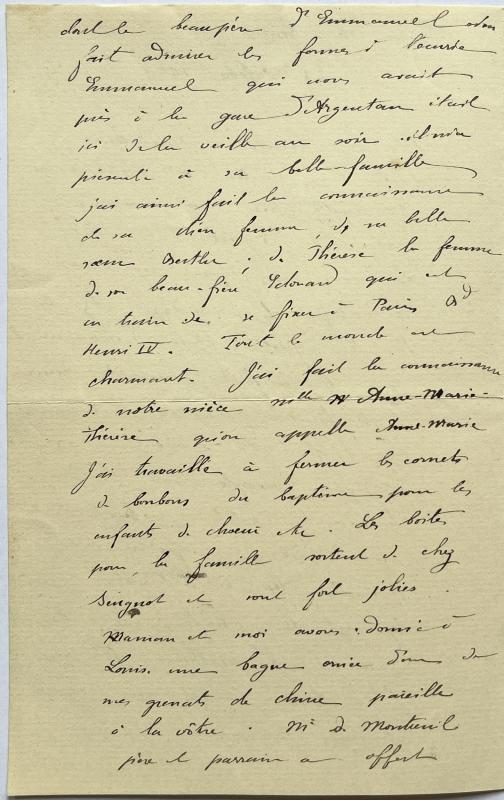 dont le beau père d'Emmanuel nous
fait admirer les formes à l'écurie
Emmanuel qui nous avait
pris à la gare d'Argentan était
ici de la veille au soir. il m'a
présenté à sa belle-famille
j'ai ainsi fait la connaissance
de sa chère femme, de sa belle
sœur Berthe, de Thérèse la femme
de son beau-frère Edouard qui est
en train de se fixer à Paris Bd
Henri IV. Tout le monde est
charmant. J'ai fait la connaissance
de notre nièce Mlle Anne-Marie-
Thérèse qu'on appelle Anne-Marie
J'ai travaillé à fermer les cornets
de bonbons du baptême pour les
enfants de chœur etc. Les boîtes
pour la famille sortent de chez
Seugnot et sont fort jolies.
Maman et moi avons donné à
Louis une bague ornée d'un de
mes grenats de chine pareille
à la vôtre. Mr de Montreuil
père le parrain a offert